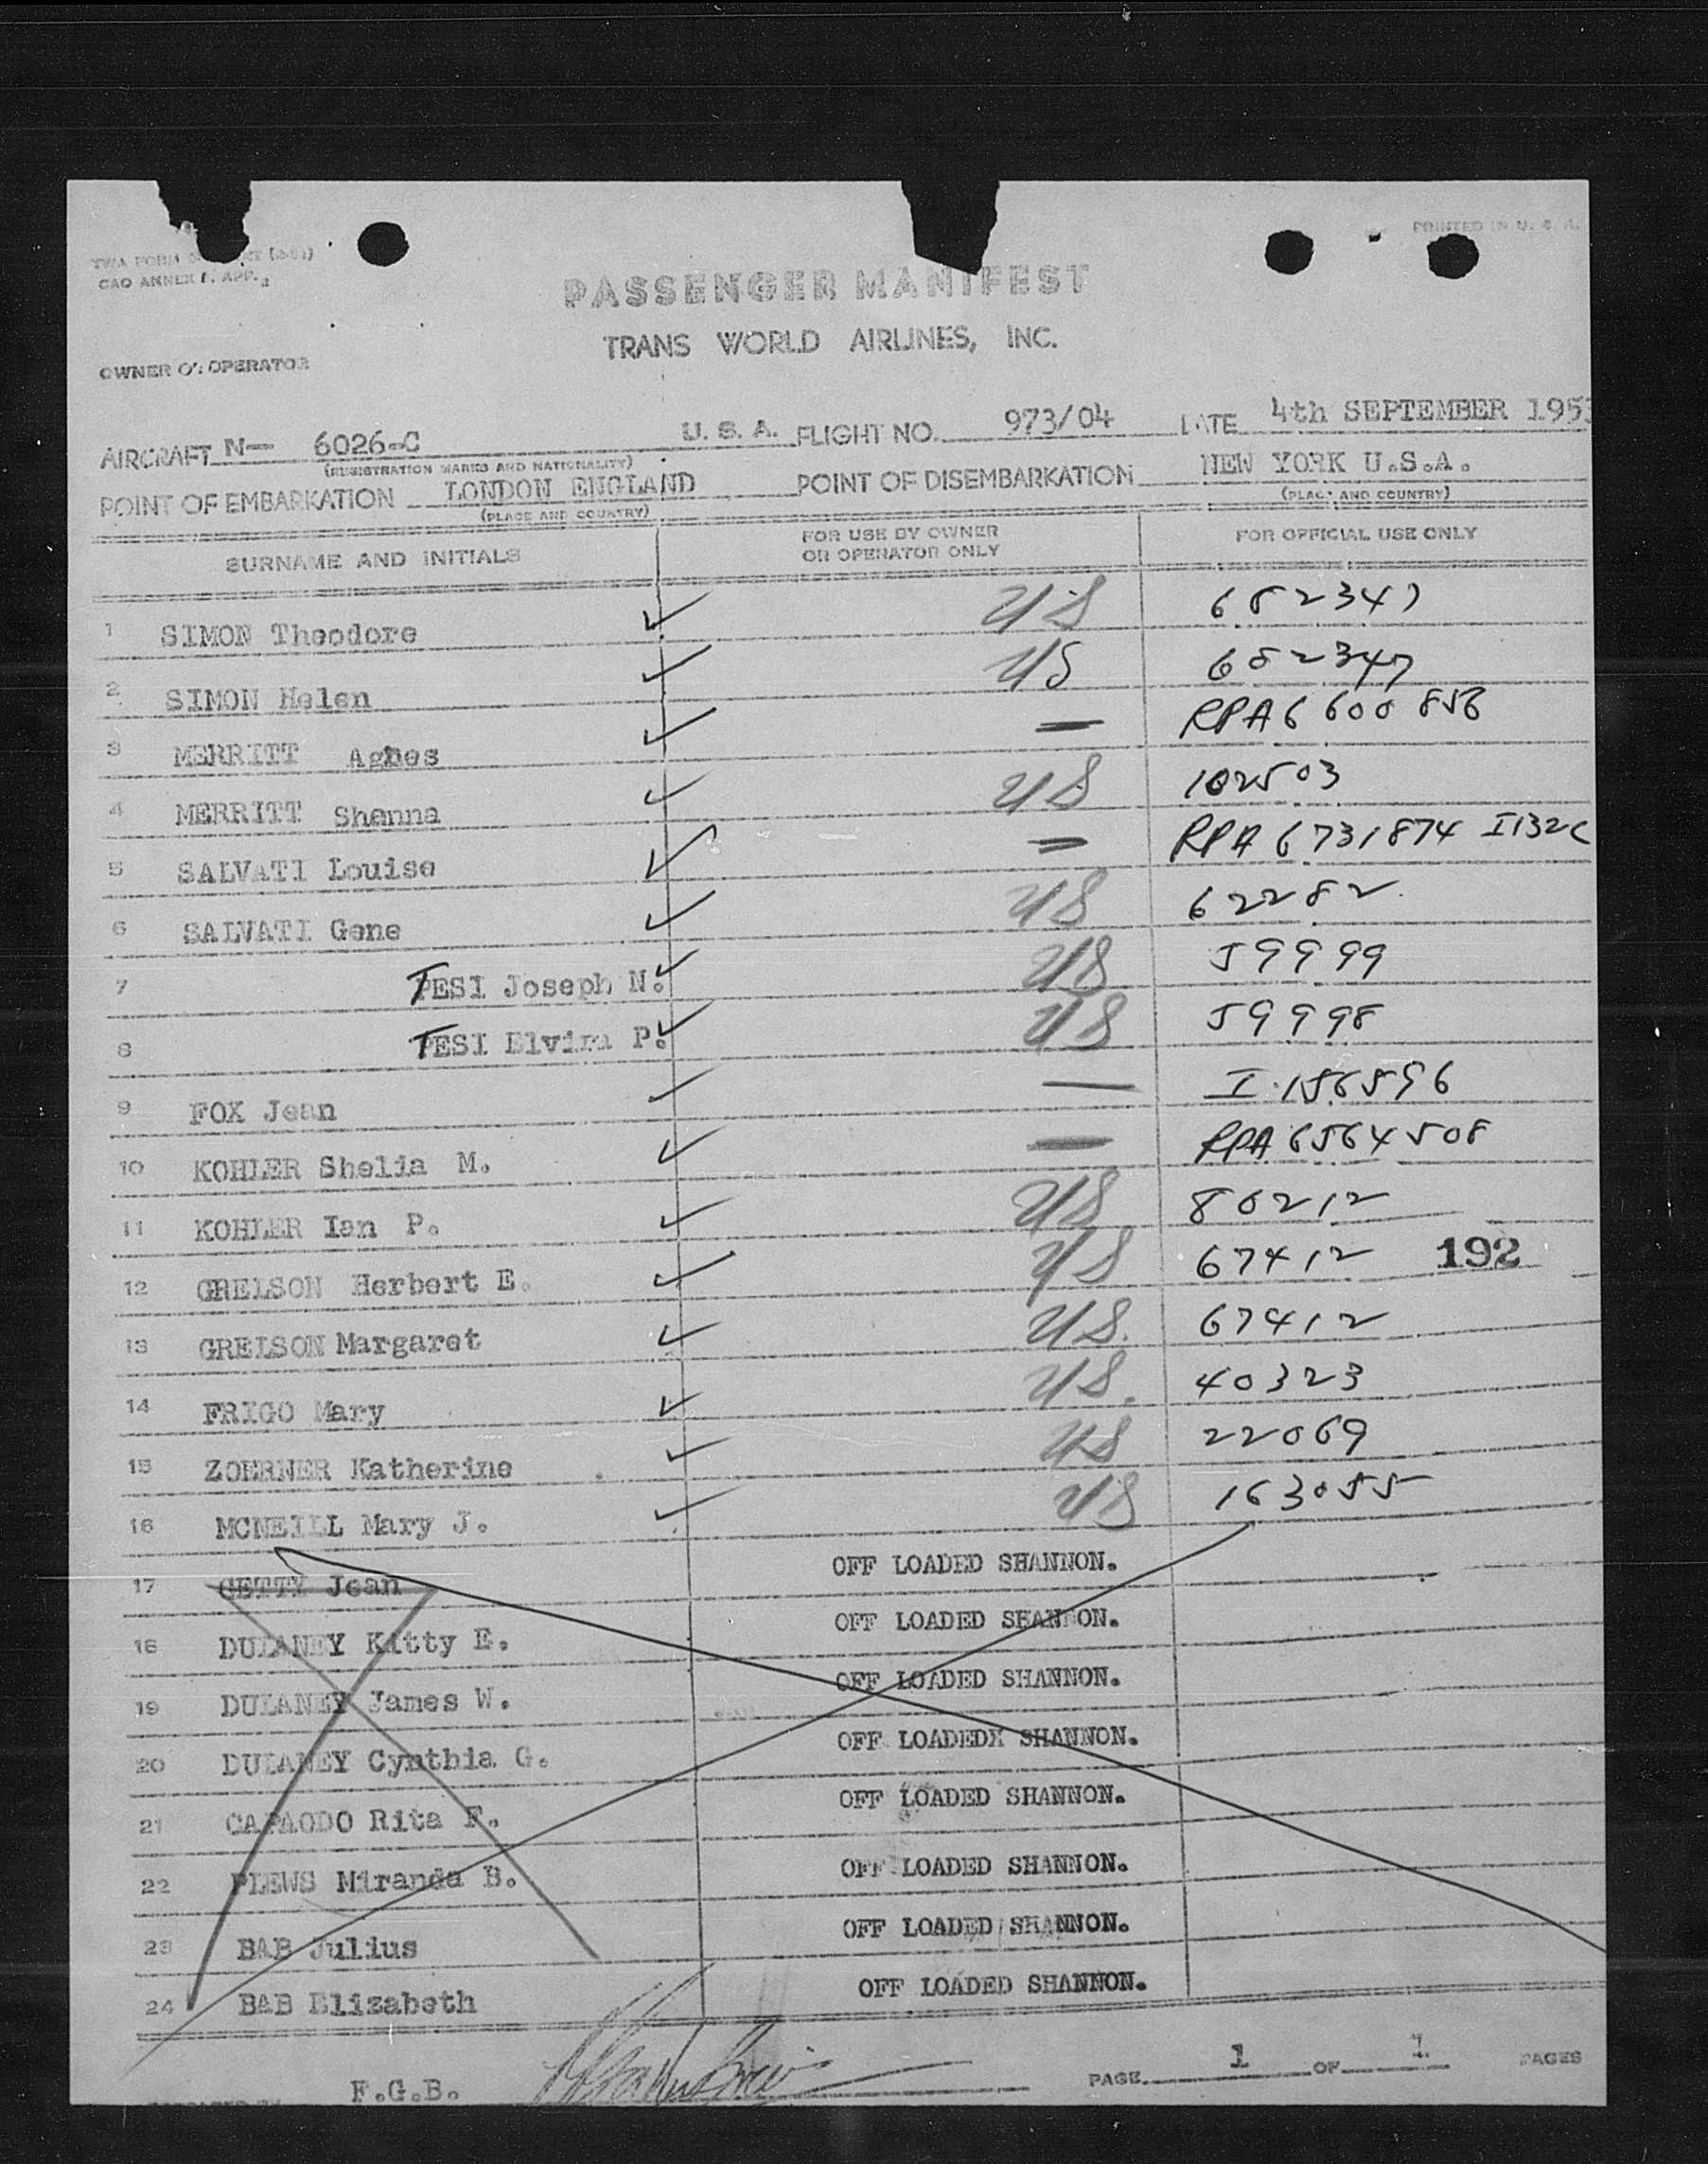 PRINTED IN U. S. A.
TWA FORM
CAO ANNEX 1. APP.
PASSENGER MANIFEST
TRANS WORLD AIRLINES, INC.
OWNER OR OPERATOR
AIRCRAFT N— 6026-C U. S. A. FLIGHT NO. 973/04 DATE 4th SEPTEMBER 195
(REGISTRATION MARKS AND NATIONALITY)
POINT OF EMBARKATION LONDON ENGLAND POINT OF DISEMBARKATION NEW YORK U.S.A.
(PLACE AND COUNTRY) (PLACE AND COUNTRY)
SURNAME AND INITIALS FOR USE BY OWNER OR OPERATOR ONLY FOR OFFICIAL USE ONLY
1 SIMON Theodore ✓ US 682347
2 SIMON Helen ✓ US 682347
3 MERRITT Agnes ✓ — RPA 6 600 856
4 MERRITT Shanna ✓ US 102503
5 SALVATI Louise ✓ — RPA 6731874 I132C
6 SALVATI Gene ✓ US 62282
7 TESI Joseph N. ✓ US 59999
8 TESI Elvira P. ✓ US 59998
9 FOX Jean ✓ — I.156596
10 KOHLER Shelia M. ✓ — RPA 6564508
11 KOHLER Ian P. ✓ US 80212
12 GRELSON Herbert E. ✓ US 67412 192
13 GRELSON Margaret ✓ US. 67412
14 FRIGO Mary ✓ US. 40323
15 ZOERNER Katherine ✓ US 22069
16 MCNEILL Mary J. ✓ US 163055
17 GETTY Jean OFF LOADED SHANNON.
18 DULANEY Kitty E. OFF LOADED SHANNON.
19 DULANEY James W. OFF LOADED SHANNON.
20 DULANEY Cynthia G. OFF LOADEDX SHANNON.
21 CAPAODO Rita F. OFF LOADED SHANNON.
22 PLEWS Miranda B. OFF LOADED SHANNON.
23 BAB Julius OFF LOADED SHANNON.
24 BAB Elizabeth OFF LOADED SHANNON.
F.G.B. PAGE 1 OF 1 PAGES